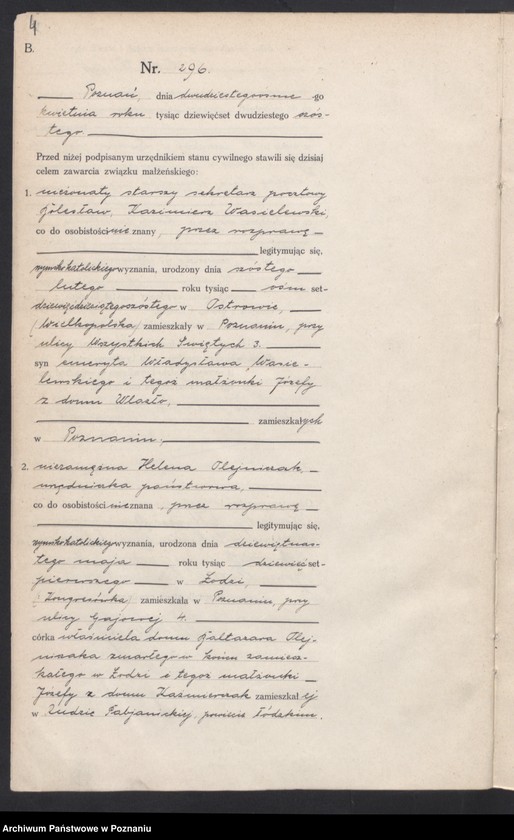 4
B.
Nr. 296.
Poznań, dnia dwudziestegoósme go
kwietnia roku tysiąc dziewięćset dwudziestego szós-
tego
Przed niżej podpisanym urzędnikiem stanu cywilnego stawili się dzisiaj
celem zawarcia związku małżeńskiego:
1. nieżonaty starszy sekretarz pocztowy
Bolesław, Kazimierz Wasielewski,
co do osobistości nie znany, przez rozprawę
legitymując się,
rzymskokatolickiego wyznania, urodzony dnia szóstego
lutego roku tysiąc ośm set-
dziewięćdziesiątegoszóstego w Ostrowie,
(Wielkopolska) zamieszkały w Poznaniu, przy
ulicy Wszystkich Świętych 3.
syn emeryta Władysława Wasie-
lewskiego i tegoż małżonki Józefy
z domu
zamieszkałych
w Poznaniu,
2. niezamężna Helena Olejniczak,
urzędniczka państwowa,
co do osobistości nie znana, przez rozprawę
legitymując się,
rzymskokatolickiego wyznania, urodzona dnia dziewiętnas-
tego maja roku tysiąc dziewięć set-
pierwszego w Łodzi,
(Kongresówka) zamieszkała w Poznaniu, przy
ulicy Gajowej 4.
córka właściciela domu Baltazara Olej-
niczaka zmarłego w zamiesz-
kałego w Łodzi i tegoż małżonki
Józefy z domu Kaźmierczak zamieszkałej
w Rudzie Pabjanickiej, powiecie Łódzkim.
Archiwum Państwowe w Poznaniu